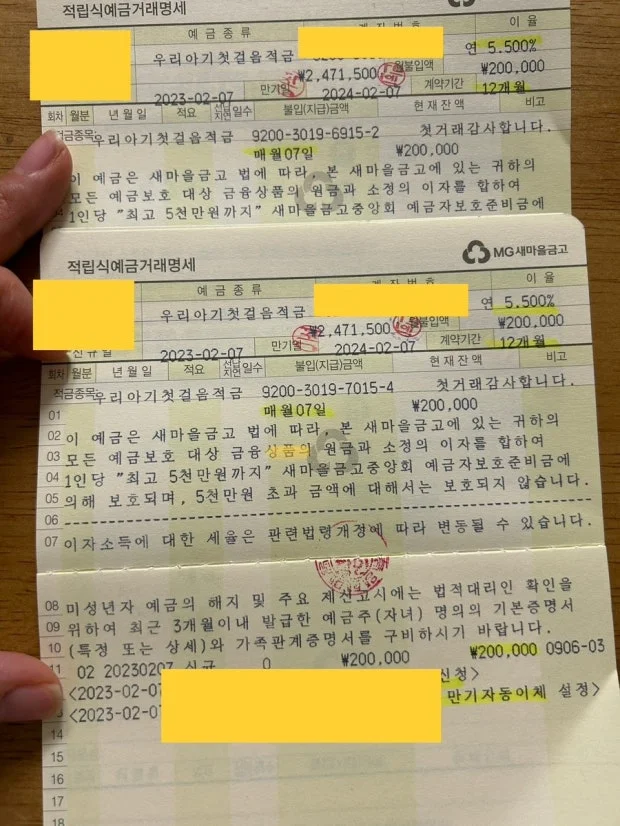 적립식예금거래명세
예 금 종 류 이 율
우리아기첫걸음적금 연 5.500%
₩2,471,500 월불입액 ₩200,000
2023-02-07 만기일 2024-02-07 계약기간 12개월
회차 월분 년 월 일 적요 선납 지연 일수 불입(지급)금액 현 재 잔 액 비고
적금종목 우리아기첫걸음적금 9200-3019-6915-2 첫거래감사합니다.
매월07일 ₩200,000
이 예금은 새마을금고 법에 따라, 본 새마을금고에 있는 귀하의
모든 예금보호 대상 금융상품의 원금과 소정의 이자를 합하여
1인당 "최고 5천만원까지" 새마을금고중앙회 예금자보호준비금에
적립식예금거래명세 MG새마을금고
예 금 종 류 계 좌 번 호 이 율
우리아기첫걸음적금 연 5.500%
₩2,471,500 월불입액 ₩200,000
신규일 2023-02-07 만기일 2024-02-07 계약기간 12개월
회차 월분 년 월 일 적요 선납 지연 일수 불입(지급)금액 현 재 잔 액 비고
적금종목 우리아기첫걸음적금 9200-3019-7015-4 첫거래감사합니다.
01 매월07일 ₩200,000
02 이 예금은 새마을금고 법에 따라, 본 새마을금고에 있는 귀하의
03 모든 예금보호 대상 금융상품의 원금과 소정의 이자를 합하여
04 1인당 "최고 5천만원까지" 새마을금고중앙회 예금자보호준비금에
05 의해 보호되며, 5천만원 초과 금액에 대해서는 보호되지 않습니다.
06 --------------------------------
07 이자소득에 대한 세율은 관련법령개정에 따라 변동될 수 있습니다.
08 미성년자 예금의 해지 및 주요 제신고시에는 법적대리인 확인을
09 위하여 최근 3개월이내 발급한 예금주(자녀) 명의의 기본증명서
10 (특정 또는 상세)와 가족관계증명서를 구비하시기 바랍니다.
11 02 20230207 신규 0 ₩200,000 ₩200,000 0906-03
<2023-02-07 신청>
<2023-02-07 만기자동이체 설정>
14
15
16
17
18